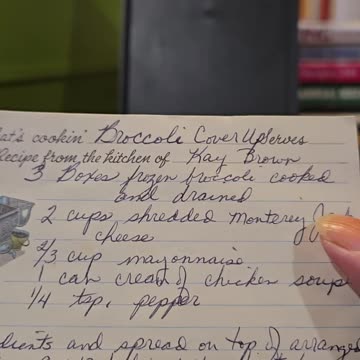 at's cookin' Broccoli Cover Up Serves
Recipe from the kitchen of Kay Brown
3 Boxes frozen broccoli cooked
and drained
2 cups shredded Monterey
cheese
2/3 cup mayonnaise
1 can cream of chicken soup
1/4 tsp. pepper
dients and spread on top of arranged